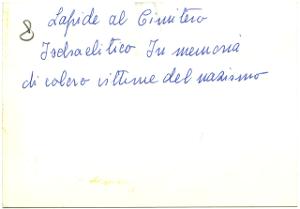 8 Lapide al Cimitero
Isdraelitico In memoria
di coloro vittime del nazismo